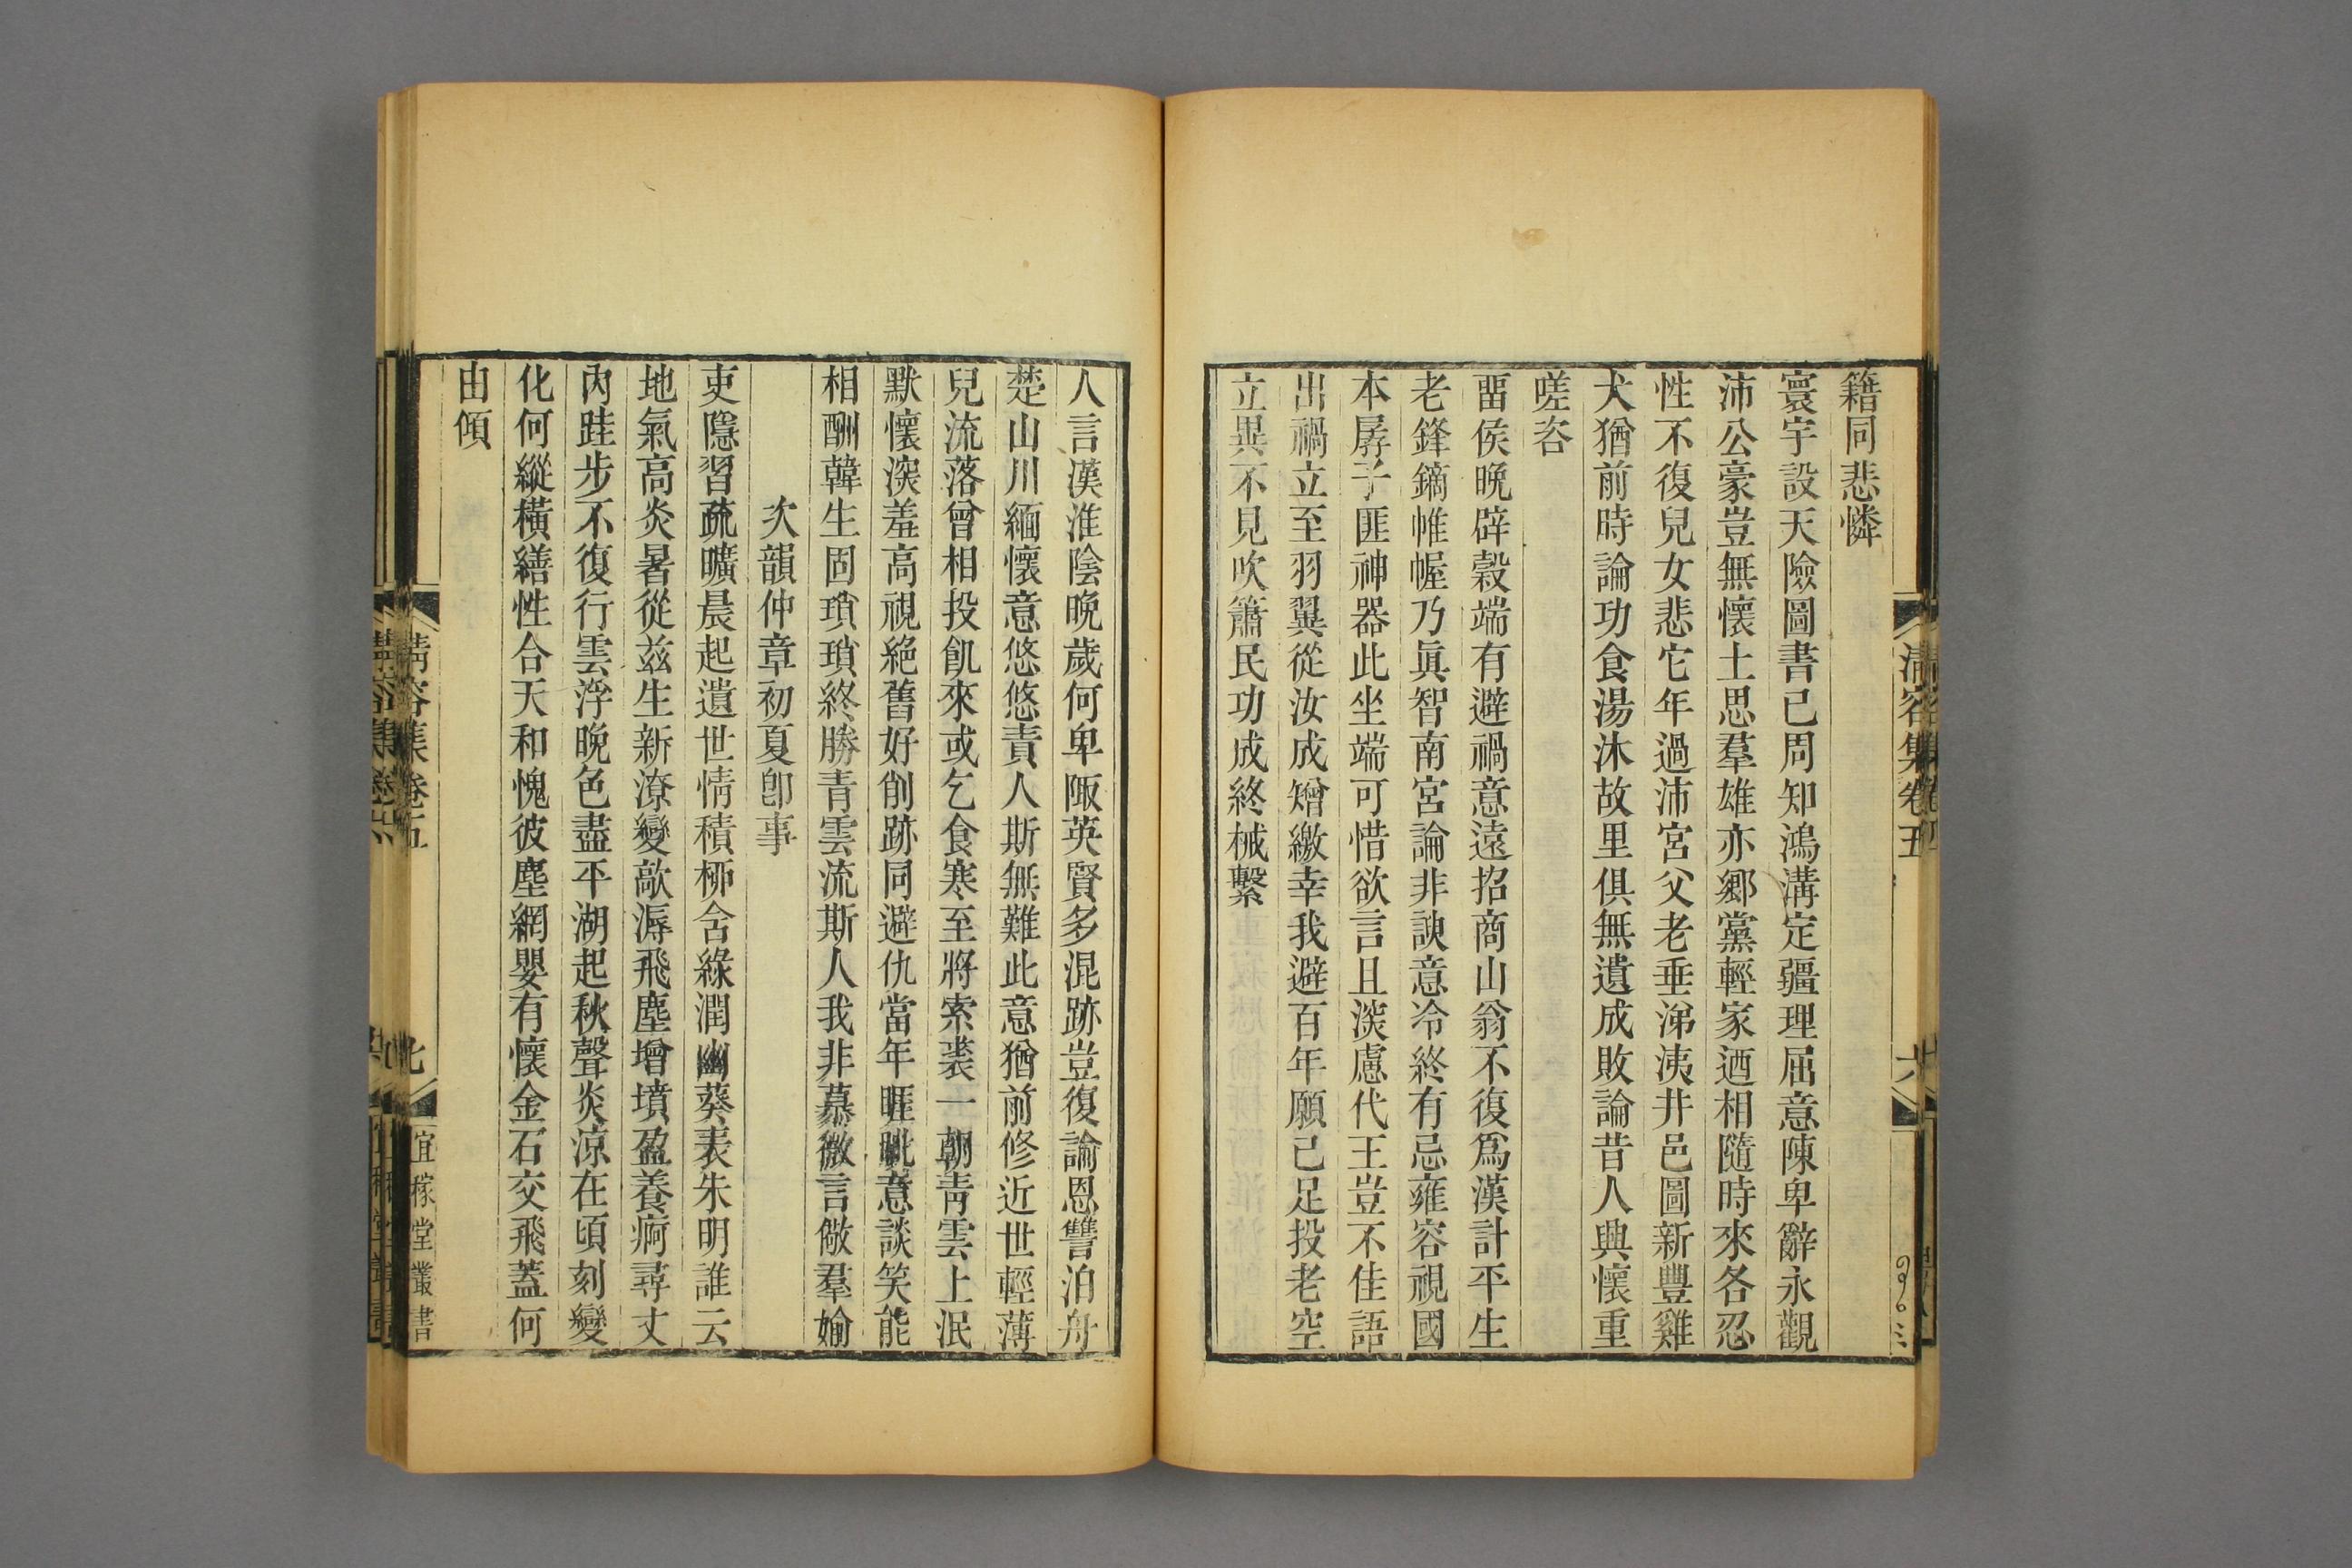 籍同悲憐
寰宇設天險圖書已周知鴻溝定疆理屈意陳卑辭永觀
沛公豪豈無懷土思羣雄亦鄉黨輕家迺相隨時來各忍
性不復兒女悲它年過沛宮父老垂涕洟井邑圖新豐雞
犬猶前時論功食湯沐故里俱無遺成敗論昔人興懷重
嗟咨
畱侯晚辟穀端有避禍意遠招商山翁不復爲漢計平生
老鋒鏑帷幄乃眞智南宮論非諛意冷終有忌雍容視國
本孱子匪神器此坐端可惜欲言且湥慮代王豈不佳語
出禍立至羽翼從汝成矰繳幸我避百年願已足投老空
立異不見吹簫民功成終械繫
清容集卷五
六
人言漢淮陰晚歲何卑陬英賢多混跡豈復論恩讐泊舟
楚山川緬懷意悠悠責人斯無難此意猶前修近世輕薄
兒流落曾相投飢來或乞食寒至將索裘一朝青雲上泯
默懷湥羞高視絕舊好削跡同避仇當年睚眦意談笑能
相酬韓生固瑣瑣終勝青雲流斯人我非慕微言儆羣媮
次韻仲章初夏卽事
吏隱習疏曠晨起遺世情積栁含綠潤幽葵表朱明誰云
地氣高炎暑從茲生新潦變歊溽飛塵增墳盈養痾尋丈
內跬步不復行雲浮晚色盡平湖起秋聲炎涼在頃刻變
化何縱橫繕性合天和愧彼塵網嬰有懷金石交飛蓋何
由傾
清容集卷五
七
宜稼堂叢書